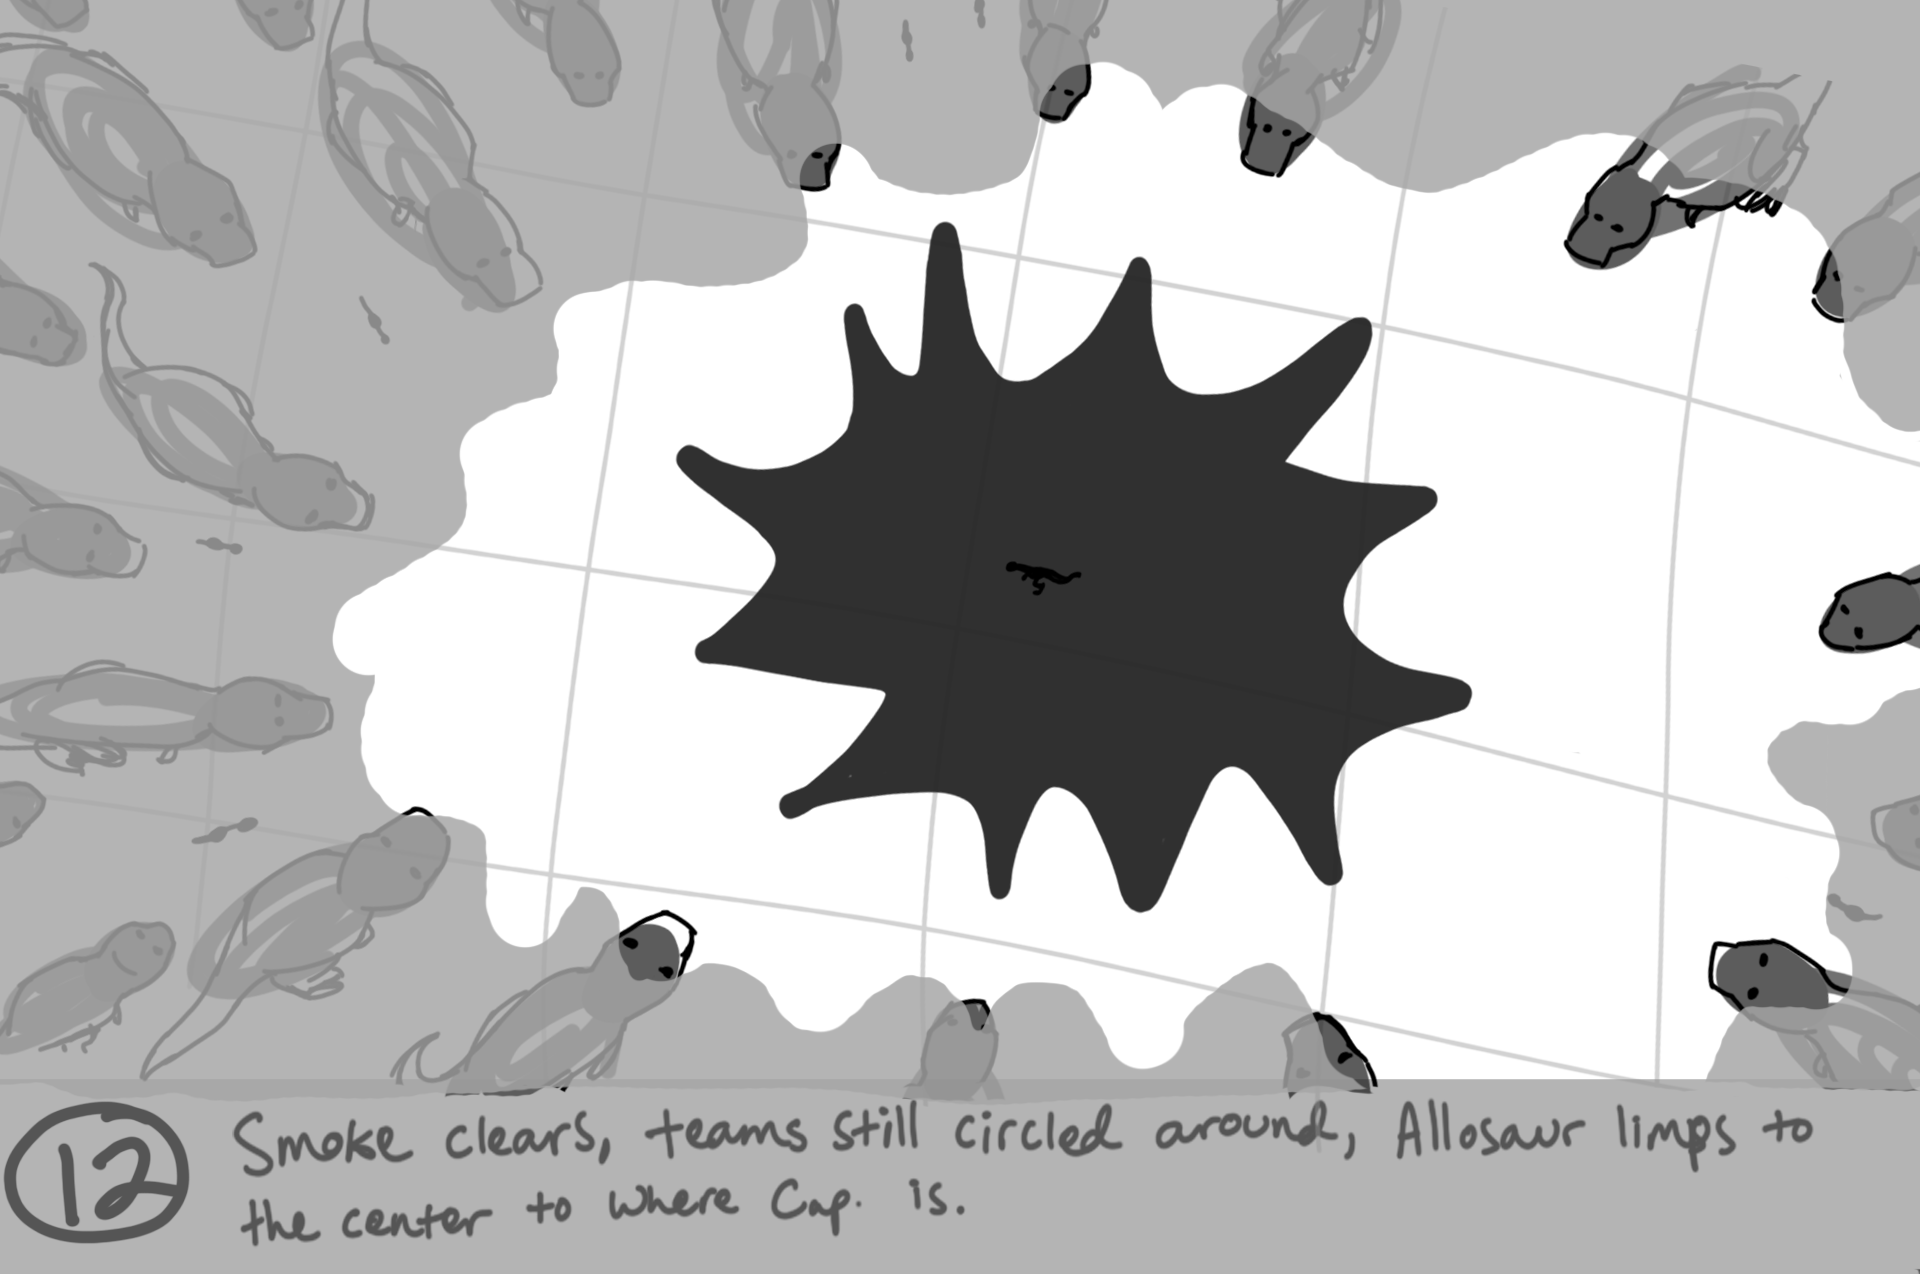 12
Smoke clears, teams still circled around, Allosaur limps to
the center to where Cap. is.